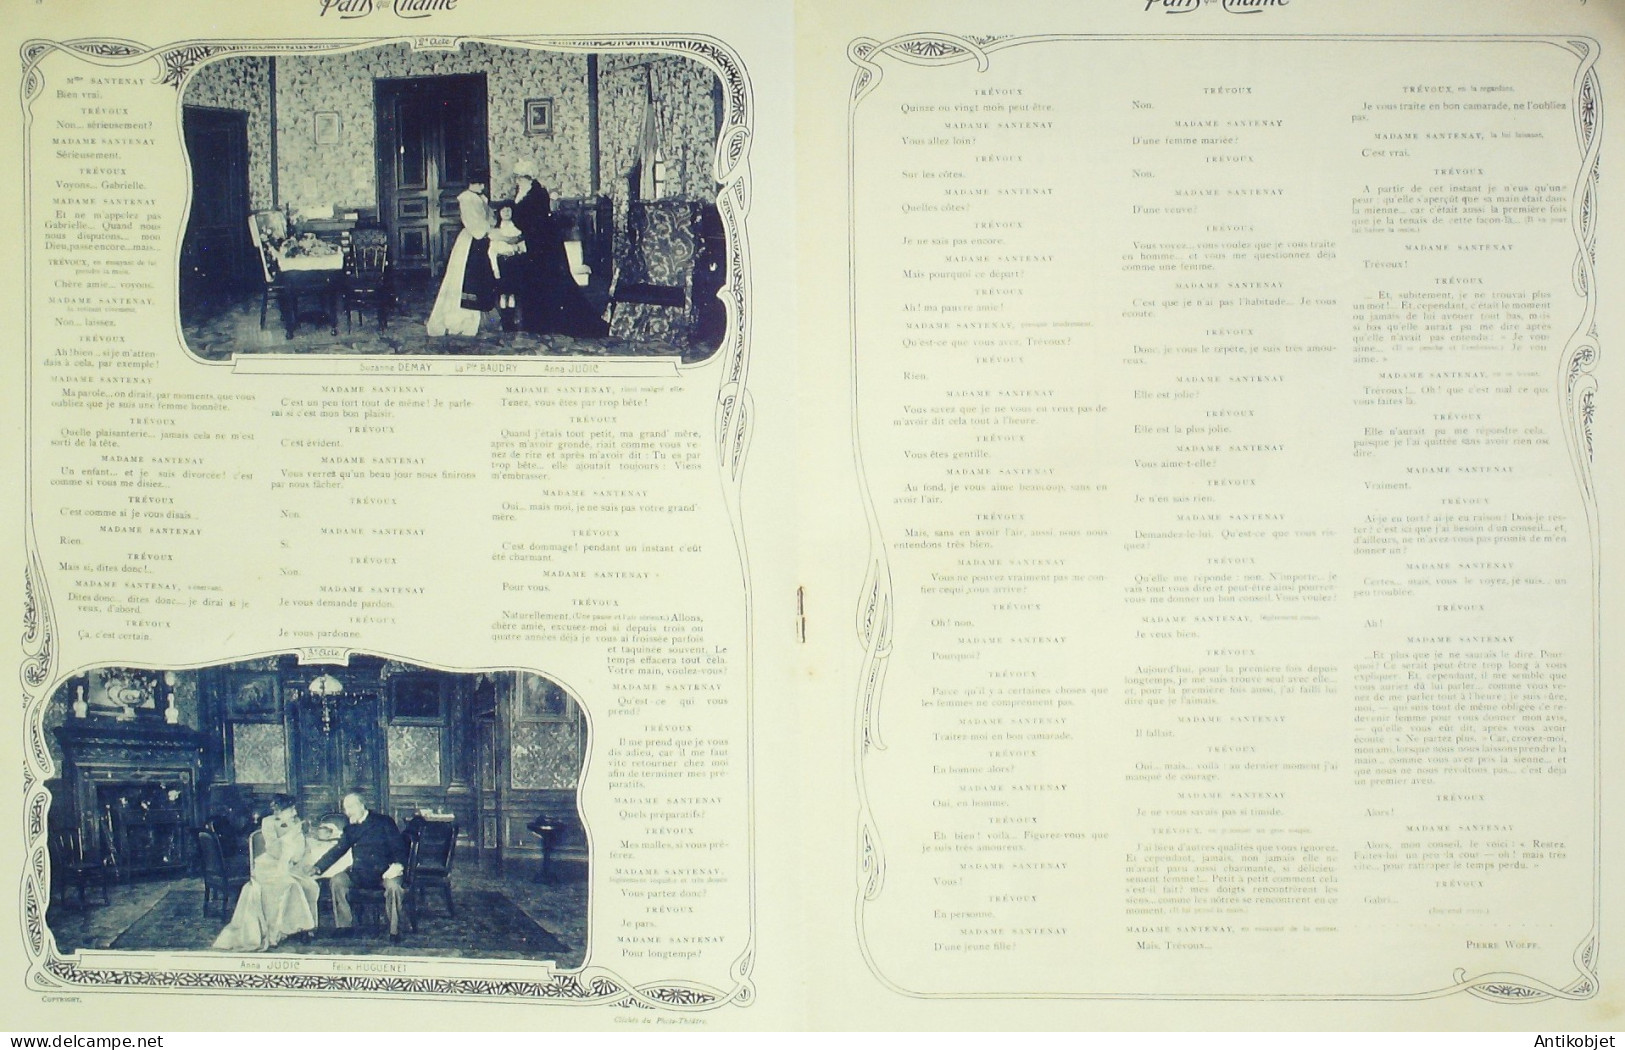 Paris qui Chante
2e Acte
Mme SANTENAY
Bien vrai.
TRÉVOUX
Non... sérieusement?
MADAME SANTENAY
Sérieusement.
TRÉVOUX
Voyons... Gabrielle.
MADAME SANTENAY
Et ne m'appelez pas
Gabrielle... Quand nous
nous disputons... mon
Dieu, passe encore... mais...
TRÉVOUX, en essayant de lui
prendre la main.
Chère amie... voyons.
MADAME SANTENAY,
Non... laissez.
TRÉVOUX
Ah! bien... si je m'atten-
dais à cela, par exemple!
Suzanne DEMAY La Pte BAUDRY Anna JUDIC
MADAME SANTENAY
Ma parole... on dirait, par moments, que vous
oubliez que je suis une femme honnête.
TRÉVOUX
Quelle plaisanterie... jamais cela ne m'est
sorti de la tête.
MADAME SANTENAY
Un enfant... et je suis divorcée! c'est
comme si vous me disiez...
TRÉVOUX
C'est comme si je vous disais...
MADAME SANTENAY
Rien.
TRÉVOUX
Mais si, dites donc!...
MADAME SANTENAY, s'énervant.
Dites donc... dites donc... je dirai si je
veux, d'abord.
TRÉVOUX
Ça, c'est certain.
MADAME SANTENAY
C'est un peu fort tout de même! Je parle-
rai si c'est mon bon plaisir.
TRÉVOUX
C'est évident.
MADAME SANTENAY
Vous verrez qu'un beau jour nous finirons
par nous fâcher.
TRÉVOUX
Non.
MADAME SANTENAY
Si.
TRÉVOUX
Non.
MADAME SANTENAY
Je vous demande pardon.
TRÉVOUX
Je vous pardonne.
MADAME SANTENAY, riant malgré elle.
Tenez, vous êtes par trop bête!
TRÉVOUX
Quand j'étais tout petit, ma grand' mère,
après m'avoir grondé, riait comme vous ve-
nez de rire et après m'avoir dit : Tu es par
trop bête... elle ajoutait toujours : Viens
m'embrasser.
MADAME SANTENAY
Oui... mais moi, je ne suis pas votre grand'
mère.
TRÉVOUX
C'est dommage! pendant un instant c'eût
été charmant.
MADAME SANTENAY
Pour vous.
TRÉVOUX
Naturellement. (Une pause et l'air sérieux.) Allons,
chère amie, excusez-moi si depuis trois ou
quatre années déjà je vous ai froissée parfois
et taquinée souvent. Le
temps effacera tout cela.
Votre main, voulez-vous?
MADAME SANTENAY
Qu'est-ce qui vous
prend?
TRÉVOUX
Il me prend que je vous
dis adieu, car il me faut
vite retourner chez moi
afin de terminer mes pré-
paratifs.
MADAME SANTENAY
Quels préparatifs?
TRÉVOUX
Mes malles, si vous pré-
férez.
MADAME SANTENAY,
légèrement inquiète et très douce
Vous partez donc?
TRÉVOUX
Je pars.
MADAME SANTENAY
Pour longtemps?
3e Acte
Anna JUDIC Félix HUGUENET
COPYRIGHT.
Clichés du Photo-Théâtre.
Paris qui Chante
9
TRÉVOUX
Quinze ou vingt mois peut-être.
MADAME SANTENAY
Vous allez loin?
TRÉVOUX
Sur les côtes.
MADAME SANTENAY
Quelles côtes?
TRÉVOUX
Je ne sais pas encore.
MADAME SANTENAY
Mais pourquoi ce départ?
TRÉVOUX
Ah! ma pauvre amie!
MADAME SANTENAY,
Qu'est-ce que vous avez, Trévoux?
TRÉVOUX
Rien.
MADAME SANTENAY
Vous savez que je ne vous en veux pas de
m'avoir dit cela tout à l'heure.
TRÉVOUX
Vous êtes gentille.
MADAME SANTENAY
Au fond, je vous aime beaucoup, sans en
avoir l'air.
TRÉVOUX
Mais, sans en avoir l'air, aussi nous nous
entendons très bien.
MADAME SANTENAY
Vous ne pouvez vraiment pas me con-
fier ce qui vous arrive?
TRÉVOUX
Oh! non.
MADAME SANTENAY
Pourquoi?
TRÉVOUX
Parce qu'il y a certaines choses que
les femmes ne comprennent pas.
MADAME SANTENAY
Traitez-moi en bon camarade.
TRÉVOUX
En homme alors?
MADAME SANTENAY
Oui, en homme.
TRÉVOUX
Eh bien! voilà... Figurez-vous que
je suis très amoureux.
MADAME SANTENAY
Vous?
TRÉVOUX
En personne.
MADAME SANTENAY
D'une jeune fille?
TRÉVOUX
Non.
MADAME SANTENAY
D'une femme mariée?
TRÉVOUX
Non.
MADAME SANTENAY
D'une veuve?
TRÉVOUX
Vous voyez... vous voulez que je vous traite
en homme... et vous me questionnez déjà
comme une femme.
MADAME SANTENAY
C'est que je n'ai pas l'habitude... Je vous
écoute.
TRÉVOUX
Donc, je vous le répète, je suis très amou-
reux.
MADAME SANTENAY
Elle est jolie?
TRÉVOUX
Elle est la plus jolie.
MADAME SANTENAY
Vous aime-t-elle?
TRÉVOUX
Je n'en sais rien.
MADAME SANTENAY
Demandez-le-lui. Qu'est-ce que vous ris-
quez?
TRÉVOUX
Qu'elle me réponde : non. N'importe... je
vais tout vous dire et peut-être ainsi pourrez-
vous me donner un bon conseil. Voulez-vous?
MADAME SANTENAY, légèrement émue.
Je veux bien.
TRÉVOUX
Aujourd'hui, pour la première fois depuis
longtemps, je me suis trouvé seul avec elle...
et, pour la première fois aussi, j'ai failli lui
dire que je l'aimais.
MADAME SANTENAY
Il fallait.
TRÉVOUX
Oui... mais... voilà : au dernier moment j'ai
manqué de courage.
MADAME SANTENAY
Je ne vous savais pas si timide.
TRÉVOUX,
J'ai bien d'autres qualités que vous ignorez.
Et cependant, jamais, non jamais elle ne
m'avait paru aussi charmante, si délicieu-
sement femme!... Petit à petit comment cela
s'est-il fait? mes doigts rencontrèrent les
siens... comme les nôtres se rencontrent en ce
moment. (Il lui prend la main.)
MADAME SANTENAY,
Mais, Trévoux...
TRÉVOUX, en la regardant.
Je vous traite en bon camarade, ne l'oubliez
pas.
MADAME SANTENAY, la lui laissant.
C'est vrai.
TRÉVOUX
A partir de cet instant je n'eus qu'une
peur : qu'elle s'aperçût que sa main était dans
la mienne... car c'était aussi la première fois
que je la tenais de cette façon-là... (Il va pour
lui baiser la main.)
MADAME SANTENAY
Trévoux!
TRÉVOUX
... Et, subitement, je ne trouvai plus
un mot!... Et, cependant, c'était le moment
ou jamais de lui avouer tout bas, mais
si bas qu'elle aurait pu me dire après
qu'elle n'avait pas entendu : « Je vous
aime... (Il se penche et l'embrasse.) Je vous
aime. »
MADAME SANTENAY,
Trévoux!... Oh! que c'est mal ce que
vous faites là.
TRÉVOUX
Elle n'aurait pu me répondre cela,
puisque je l'ai quittée sans avoir rien osé
dire.
MADAME SANTENAY
Vraiment.
TRÉVOUX
Ai-je eu tort? ai-je eu raison? Dois-je res-
ter? c'est ici que j'ai besoin d'un conseil... et,
d'ailleurs, ne m'avez-vous pas promis de m'en
donner un?
MADAME SANTENAY
Certes... mais, vous le voyez, je suis... un
peu troublée.
TRÉVOUX
Ah!
MADAME SANTENAY
...Et plus que je ne saurais le dire. Pour-
quoi? Ce serait peut-être trop long à vous
expliquer. Et, cependant, il me semble que
vous auriez dû lui parler... comme vous ve-
nez de me parler tout à l'heure; je suis sûre,
moi, — qui suis tout de même obligée de re-
devenir femme pour vous donner mon avis,
— qu'elle vous eût dit, après vous avoir
écouté : « Ne partez plus. » Car, croyez-moi,
mon ami, lorsque nous nous laissons prendre la
main... comme vous avez pris la sienne... et
que nous ne nous révoltons pas... c'est déjà
un premier aveu.
TRÉVOUX
Alors!
MADAME SANTENAY
Alors, mon conseil, le voici : « Restez.
Faites-lui un peu la cour — oh! mais très
vite... pour rattraper le temps perdu. »
TRÉVOUX
Gabri...
PIERRE WOLFF.
Antikobjet